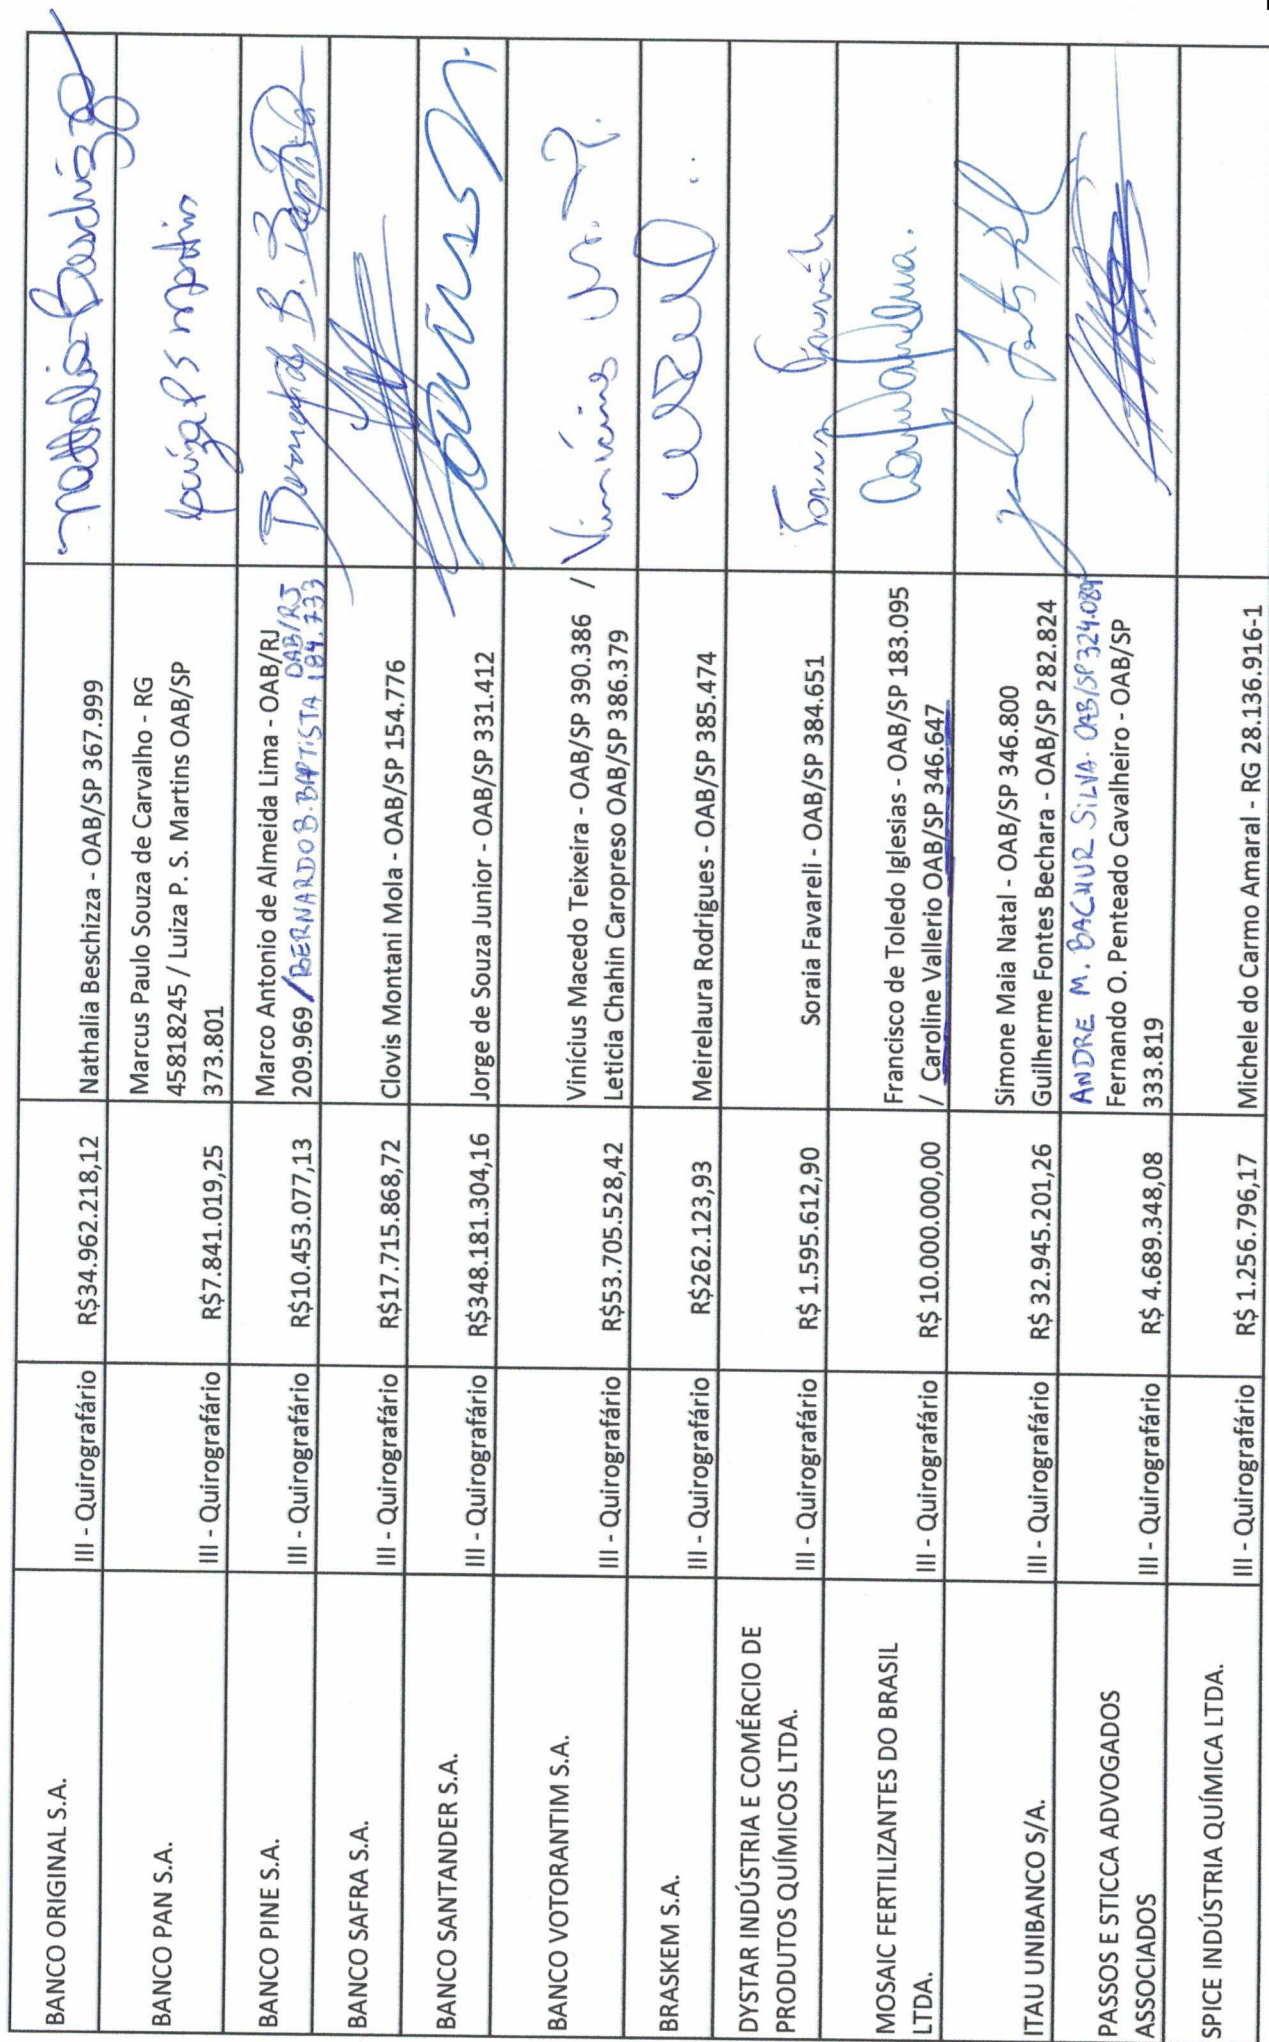 BANCO ORIGINAL S.A. III - Quirografário R$34.962.218,12 Nathalia Beschizza - OAB/SP 367.999 Nathalia Beschizza
BANCO PAN S.A. III - Quirografário R$7.841.019,25 Marcus Paulo Souza de Carvalho - RG
45818245 / Luiza P. S. Martins OAB/SP
373.801 Luiza P S Martins
BANCO PINE S.A. III - Quirografário R$10.453.077,13 Marco Antonio de Almeida Lima - OAB/RJ
209.969 / BERNARDO B. BAPTISTA OAB/RJ
184.733 Bernardo B. Baptista
BANCO SAFRA S.A. III - Quirografário R$17.715.868,72 Clovis Montani Mola - OAB/SP 154.776
BANCO SANTANDER S.A. III - Quirografário R$348.181.304,16 Jorge de Souza Junior - OAB/SP 331.412
BANCO VOTORANTIM S.A. III - Quirografário R$53.705.528,42 Vinícius Macedo Teixeira - OAB/SP 390.386 /
Leticia Chahin Caropreso OAB/SP 386.379 Vinícius M. T.
BRASKEM S.A. III - Quirografário R$262.123,93 Meirelaura Rodrigues - OAB/SP 385.474
DYSTAR INDÚSTRIA E COMÉRCIO DE
PRODUTOS QUÍMICOS LTDA. III - Quirografário R$ 1.595.612,90 Soraia Favareli - OAB/SP 384.651
MOSAIC FERTILIZANTES DO BRASIL
LTDA. III - Quirografário R$ 10.000.000,00 Francisco de Toledo Iglesias - OAB/SP 183.095
/ Caroline Vallerio OAB/SP 346.647
ITAU UNIBANCO S/A. III - Quirografário R$ 32.945.201,26 Simone Maia Natal - OAB/SP 346.800
Guilherme Fontes Bechara - OAB/SP 282.824
PASSOS E STICCA ADVOGADOS
ASSOCIADOS III - Quirografário R$ 4.689.348,08 ANDRE M. BACHUR SILVA - OAB/SP 324.089
Fernando O. Penteado Cavalheiro - OAB/SP
333.819
SPICE INDÚSTRIA QUÍMICA LTDA. III - Quirografário R$ 1.256.796,17 Michele do Carmo Amaral - RG 28.136.916-1